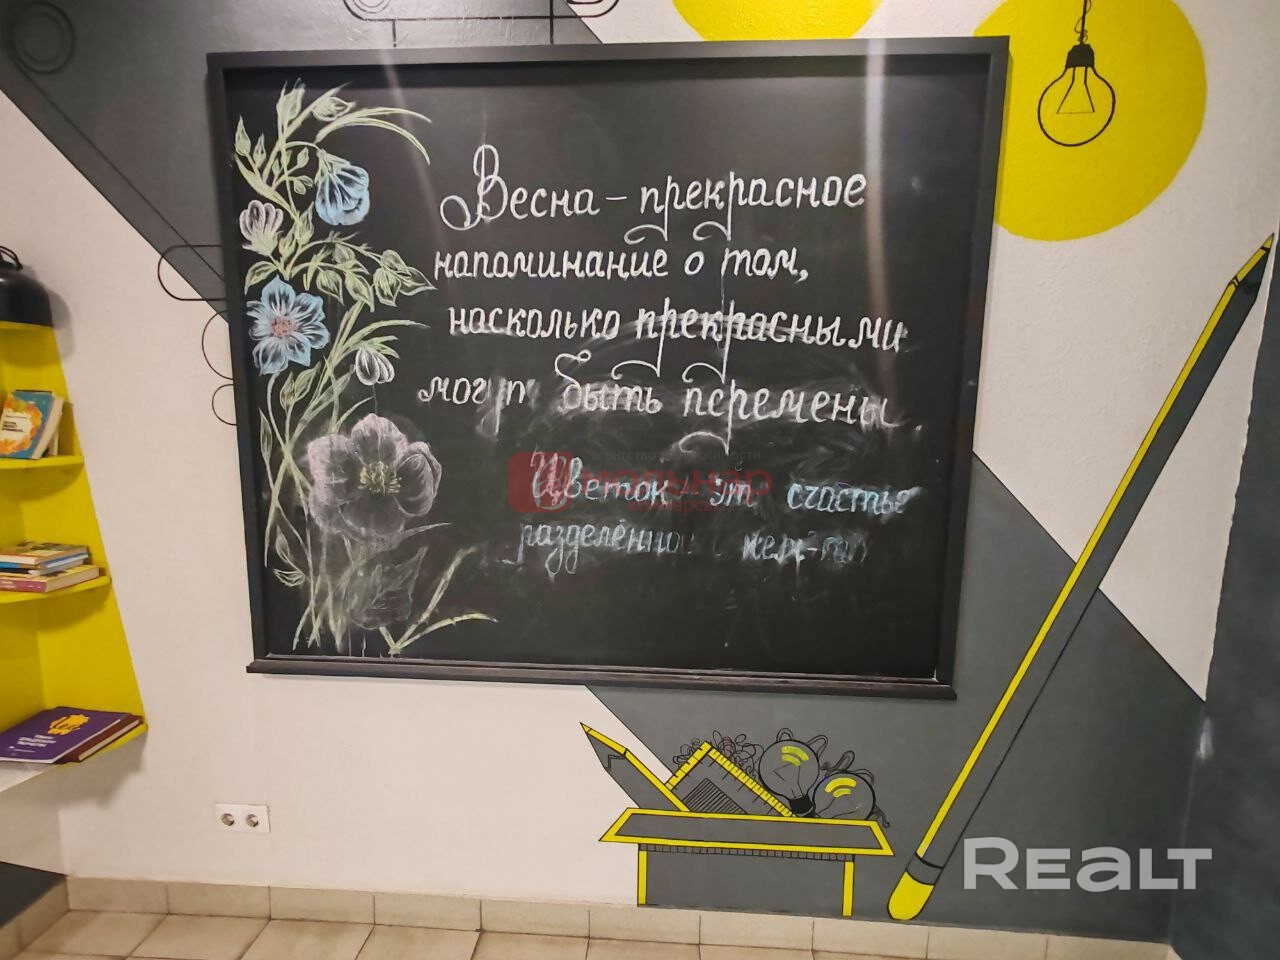 Весна – прекрасное
напоминание о том,
насколько прекрасными
могут быть перемены.
Цветок эт счастье
разделённо
агентство недвижимости
мольнар
REALT